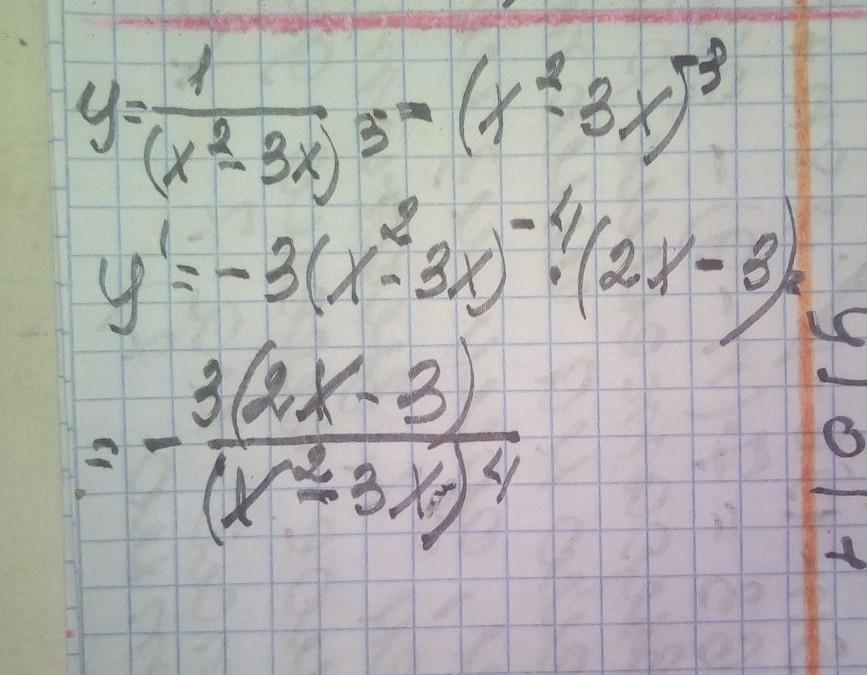 y = 1/(x² - 3x)³ = (x² - 3x)⁻³
y' = -3(x² - 3x)⁻⁴ · (2x - 3) =
= - 3(2x - 3)/(x² - 3x)⁴